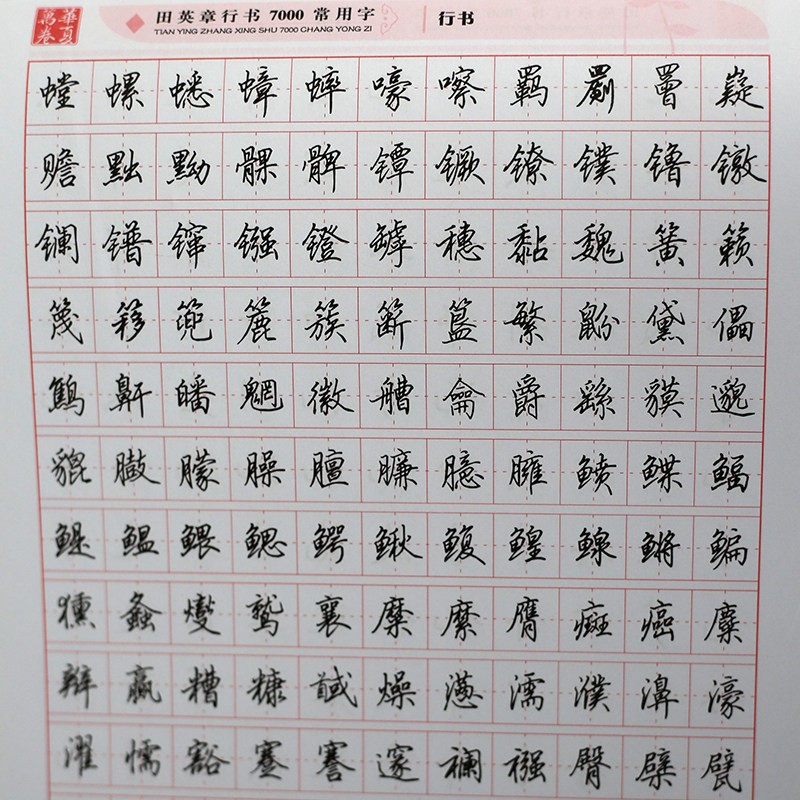 萬卷 華夏
田英章行书 7000 常用字 行书
TIAN YING ZHANG XING SHU 7000 CHANG YONG ZI
螳 螺 蟋 蟑 蟀 嚎 嚓 羁 罽 罾 嶷
赡 黜 黝 髁 髀 镡 镢 镣 镤 镥 镦
镧 镨 镩 镪 镫 罅 穗 黏 魏 簧 簌
篾 簃 篼 簏 簇 簖 簋 繁 鼢 黛 儡
鹪 鼾 皤 魍 徽 艚 龠 爵 繇 貘 邈
貔 臌 朦 臊 膻 臁 臆 臃 鲼 鲽 鲾
鳀 鳁 鳂 鳃 鳄 鳅 鳆 鳇 鳈 鳉 鳊
獯 螽 燮 鹫 襄 糜 縻 膺 癍 癌 麋
辫 赢 糟 糠 馘 燥 懑 濡 濮 濞 濠
濯 懦 豁 蹇 謇 邃 襕 襁 臀 檗 甓